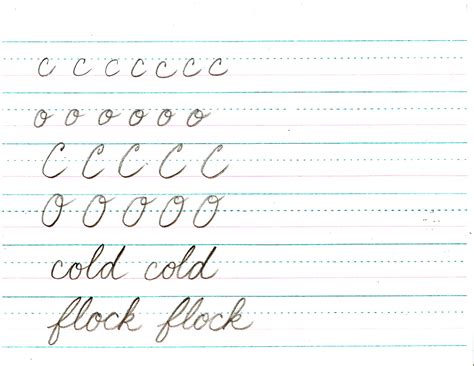 c c c c c c c
o o o o o o
C C C C C
O O O O O
cold cold
flock flock